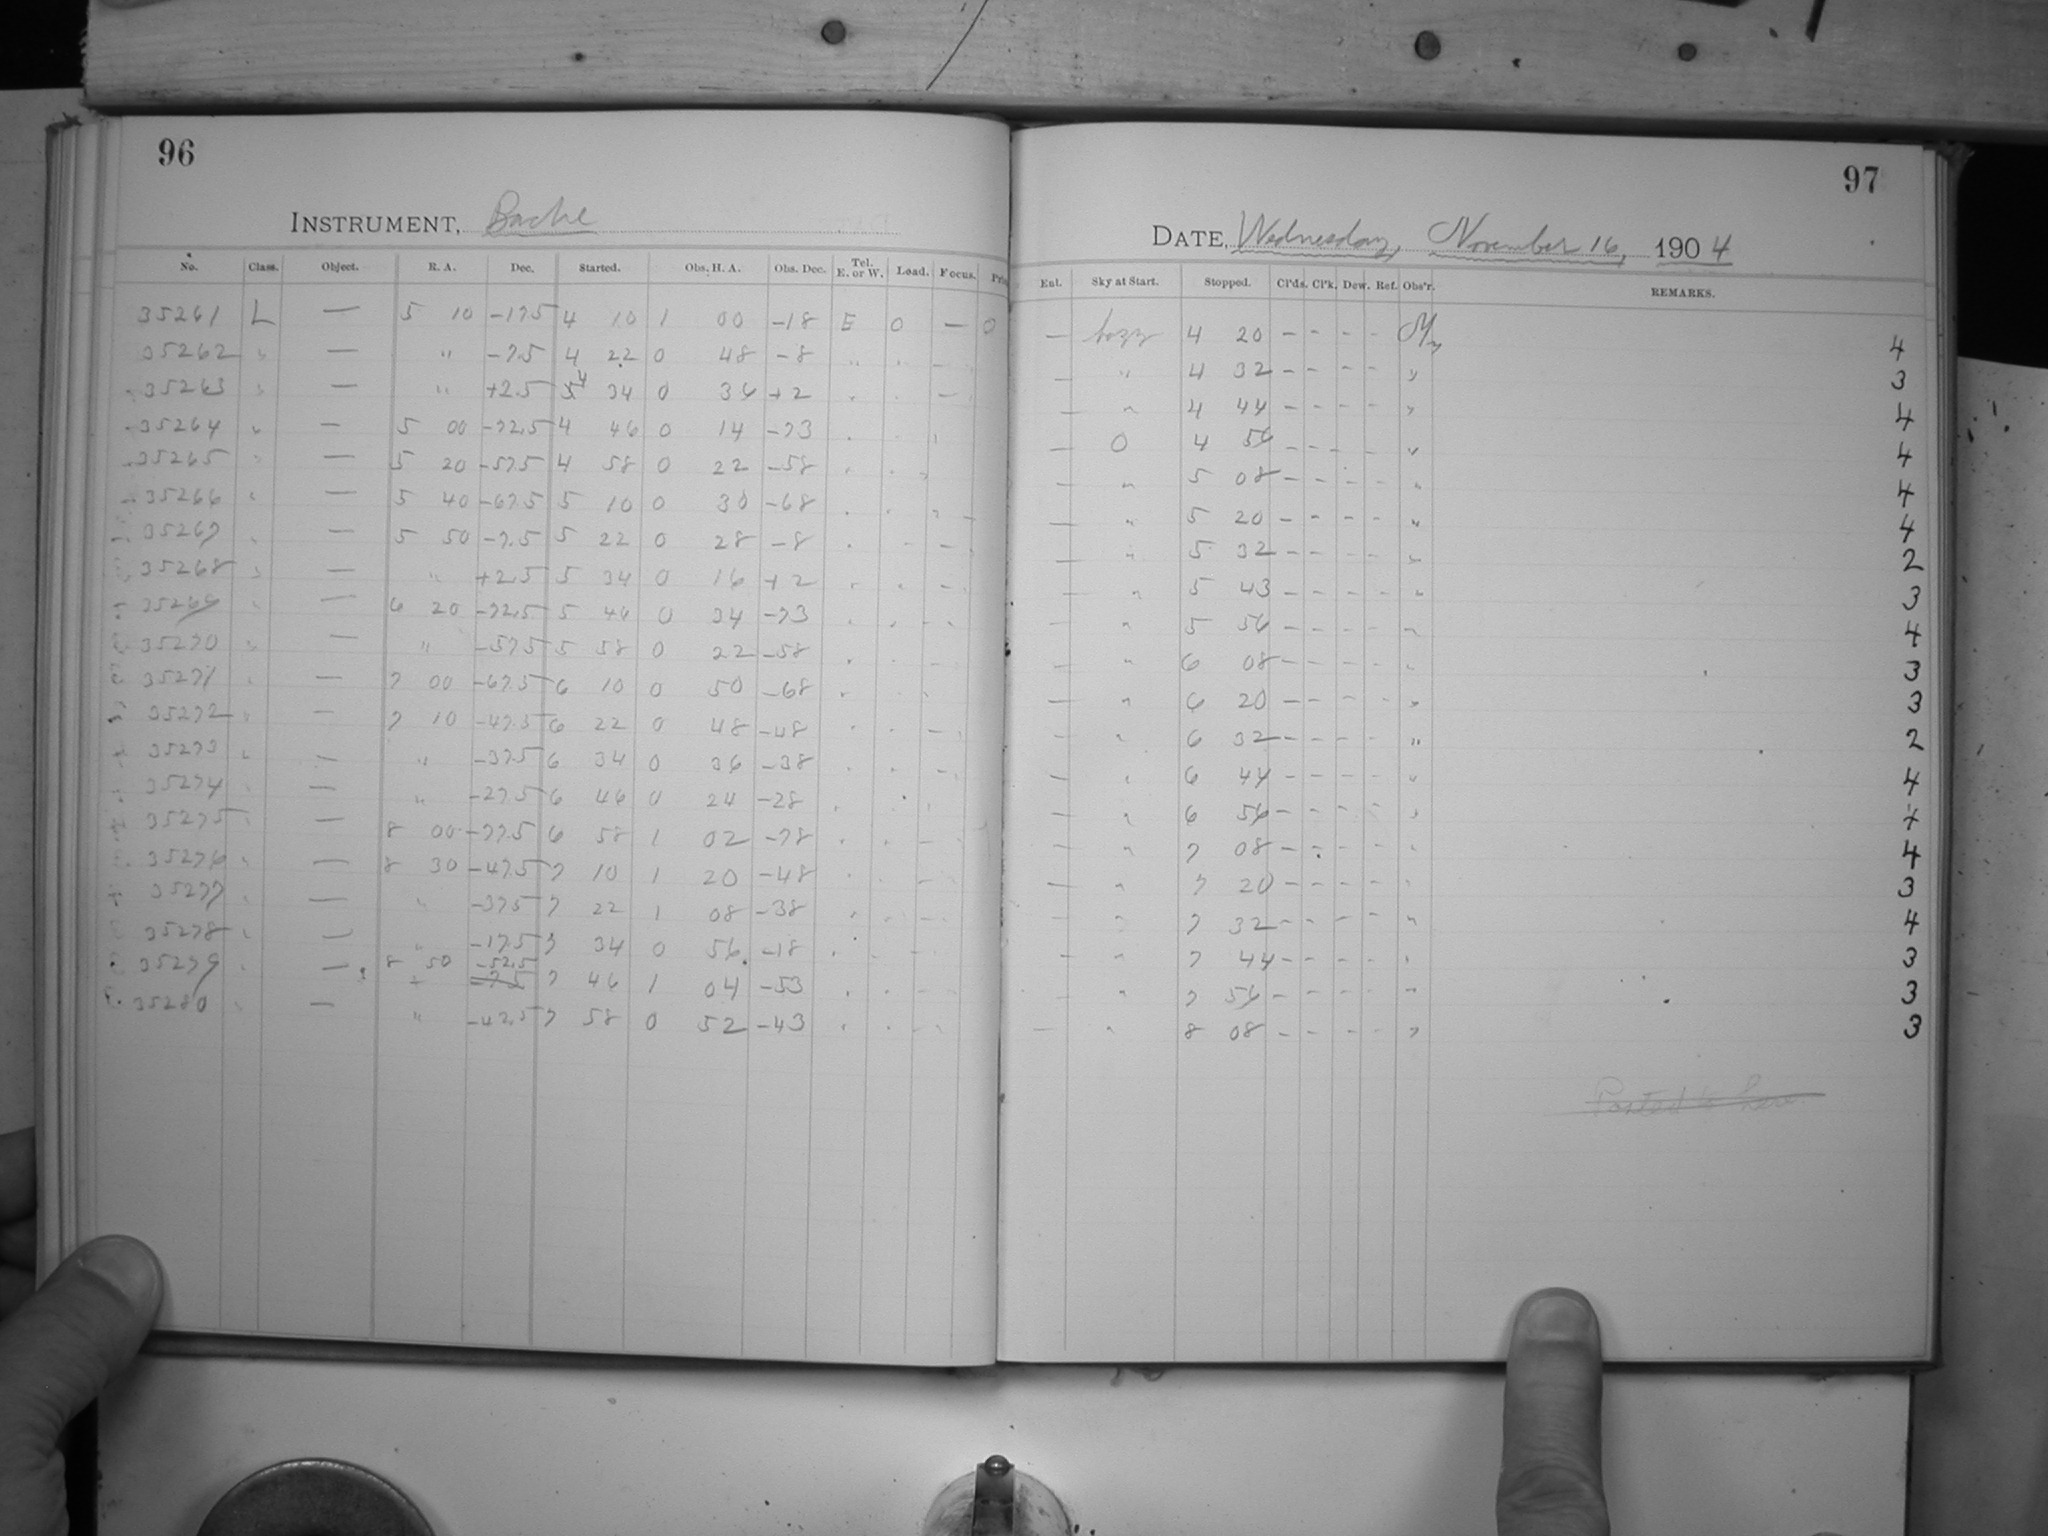 96
INSTRUMENT, Bache
No. Class. Object. R. A. Dec. Started. Obs. H. A. Obs. Dec. Tel. E. or W. Load. Focus.
35261 L — 5 10 -17.5 4 10 1 00 -18 E 0 — 0
35262 " — " -7.5 4 22 0 48 -8 " " -
35263 " — " +2.5 4 34 0 36 +2 " " -
35264 " — 5 00 -72.5 4 46 0 14 -73 " "
35265 " — 5 20 -57.5 4 58 0 22 -58 " "
35266 " — 5 40 -67.5 5 10 0 30 -68 " " "
35267 " — 5 50 -7.5 5 22 0 28 -8 " - -
35268 " — " +2.5 5 34 0 16 +2 " " -
35269 " — 6 20 -72.5 5 46 0 34 -73 " " -
35270 " — " -57.5 5 58 0 22 -58 " " -
35271 " — 7 00 -67.5 6 10 0 50 -68 " "
35272 " — 7 10 -47.5 6 22 0 48 -48 " " -
35273 " — " -37.5 6 34 0 36 -38 " " -
35274 " — " -27.5 6 46 0 24 -28 " " -
35275 " — 8 00 -77.5 6 58 1 02 -78 " " -
35276 " — 8 30 -47.5 7 10 1 20 -48 " " -
35277 " — " -37.5 7 22 1 08 -38 " " -
35278 " — " -17.5 7 34 0 56 -18 " " -
35279 " — 8 50 -52.5 7 46 1 04 -53 " " -
35280 " — " -42.5 7 58 0 52 -43 " " -
97
DATE, Wednesday, November 16, 1904
Ent. Sky at Start. Stopped. Cl'ds. Cl'k. Dew. Ref. Obs'r. REMARKS.
— hazy 4 20 - - - - 4
— " 4 32 - - - - " 3
— " 4 44 - - - - " 4
— 0 4 56 - - - - " 4
— " 5 08 - - - - " 4
— " 5 20 - - - - " 4
— " 5 32 - - - - " 2
— " 5 43 - - - - " 3
— " 5 56 - - - - " 4
— " 6 08 - - - - " 3
— " 6 20 - - - - " 3
— " 6 32 - - - - " 2
— " 6 44 - - - - " 4
— " 6 56 - - - - "
— " 7 08 - - - - " 4
— " 7 20 - - - - " 3
— " 7 32 - - - - " 4
— " 7 44 - - - - " 3
— " 7 56 - - - - " 3
— " 8 08 - - - - " 3
Posted to here.